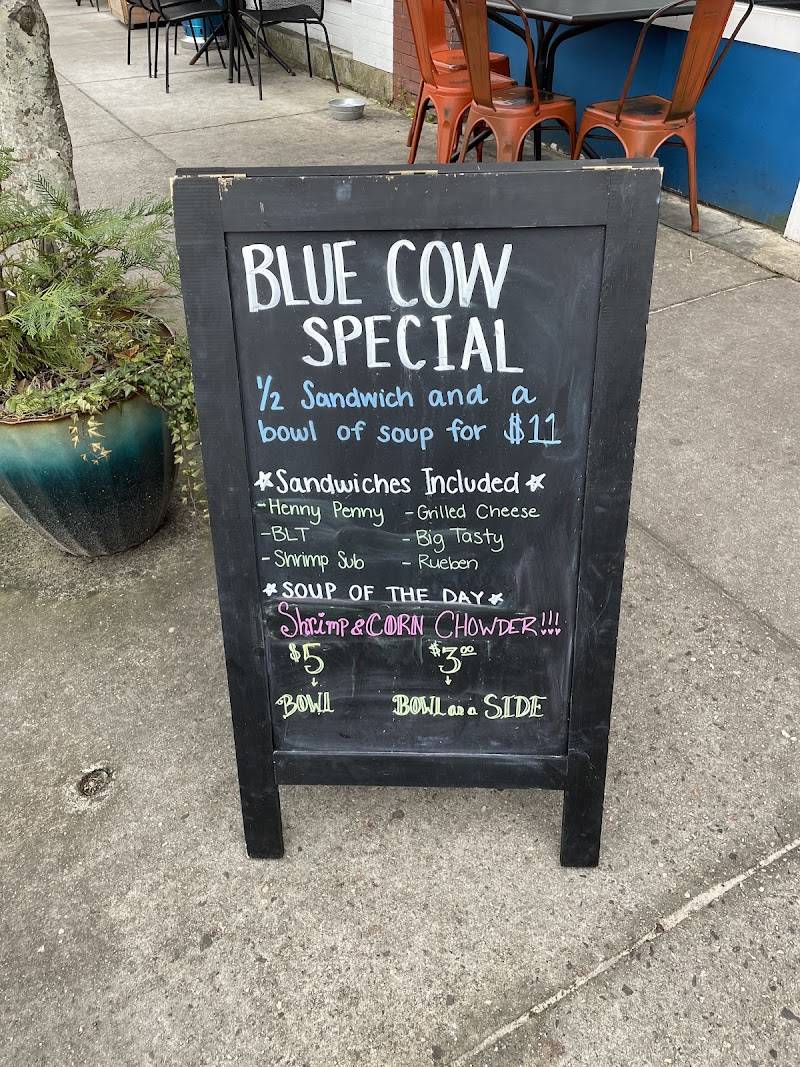 BLUE COW
SPECIAL
1/2 Sandwich and a
bowl of soup for $11
*Sandwiches Included*
-Henny Penny -Grilled Cheese
-BLT - Big Tasty
-Shrimp Sub - Rueben
*SOUP OF THE DAY*
Shrimp & CORN CHOWDER!!!
$5 $3.00
BOWl BOWL as a SIDE